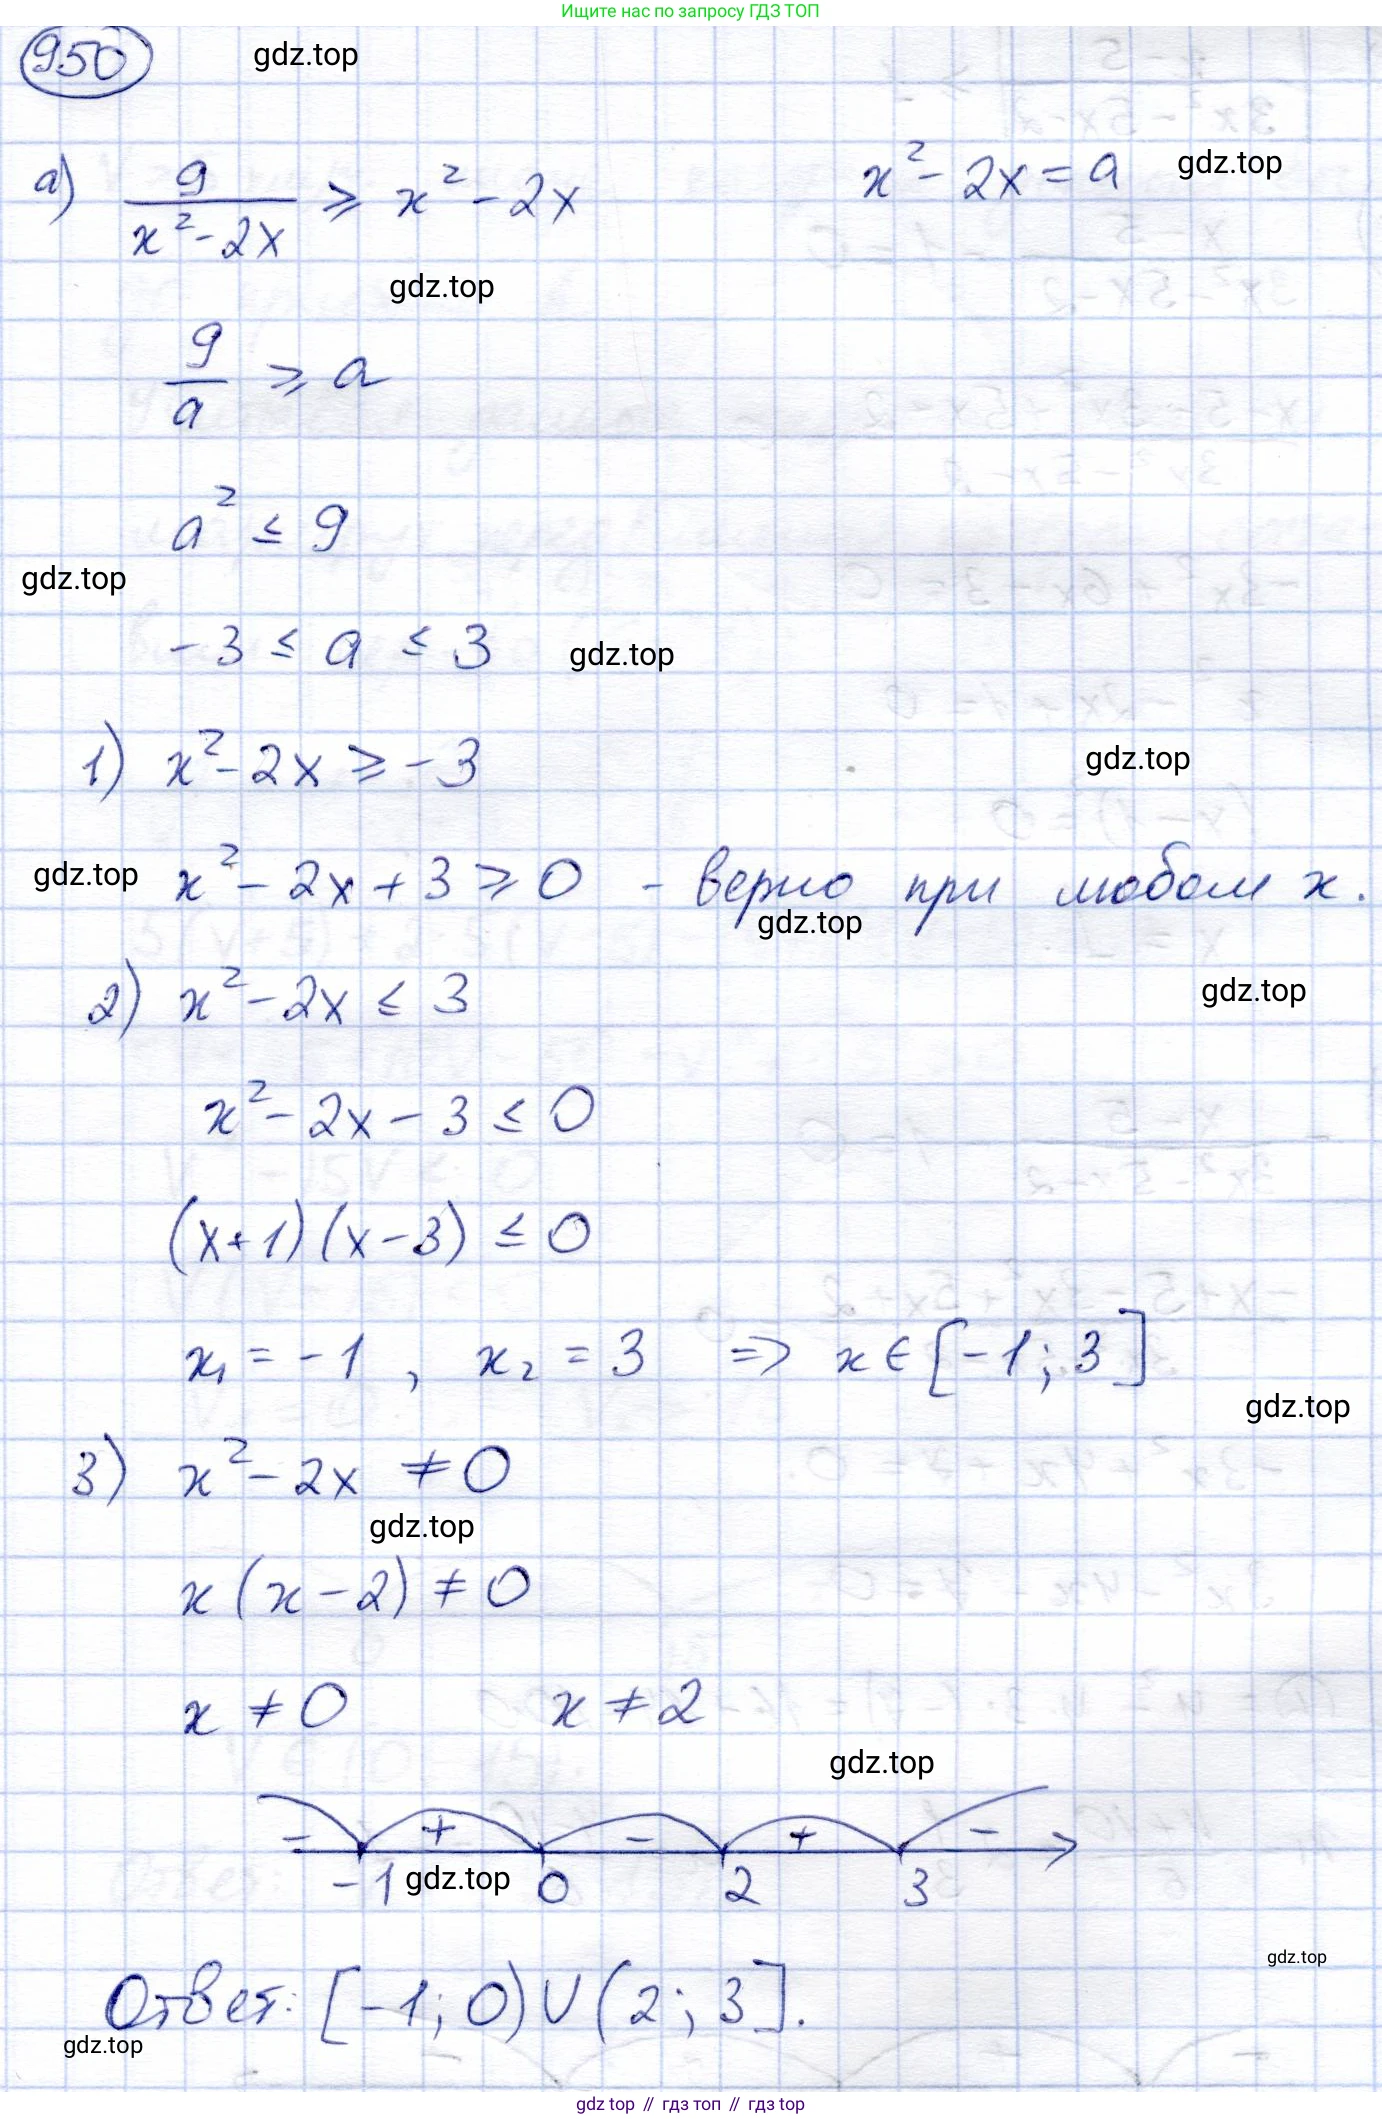 Ищите нас по запросу ГДЗ ТОП
950 gdz.top
а) 9/(x² - 2x) ⩾ x² - 2x    x² - 2x = a gdz.top
gdz.top
9/a ⩾ a
a² ≤ 9
gdz.top
-3 ≤ a ≤ 3 gdz.top
1) x² - 2x ⩾ -3 gdz.top
gdz.top x² - 2x + 3 ⩾ 0 - верно при любом x.
gdz.top
2) x² - 2x ≤ 3 gdz.top
x² - 2x - 3 ≤ 0
(x+1)(x-3) ≤ 0
x₁ = -1 , x₂ = 3 => x ∈ [-1; 3]
gdz.top
3) x² - 2x ≠ 0
gdz.top
x(x-2) ≠ 0
x ≠ 0    x ≠ 2
gdz.top
- + - + -
-1 gdz.top 0 2 3
gdz.top
Ответ: [-1; 0) ∪ (2; 3].
gdz.top
gdz top // гдз топ // гдз top